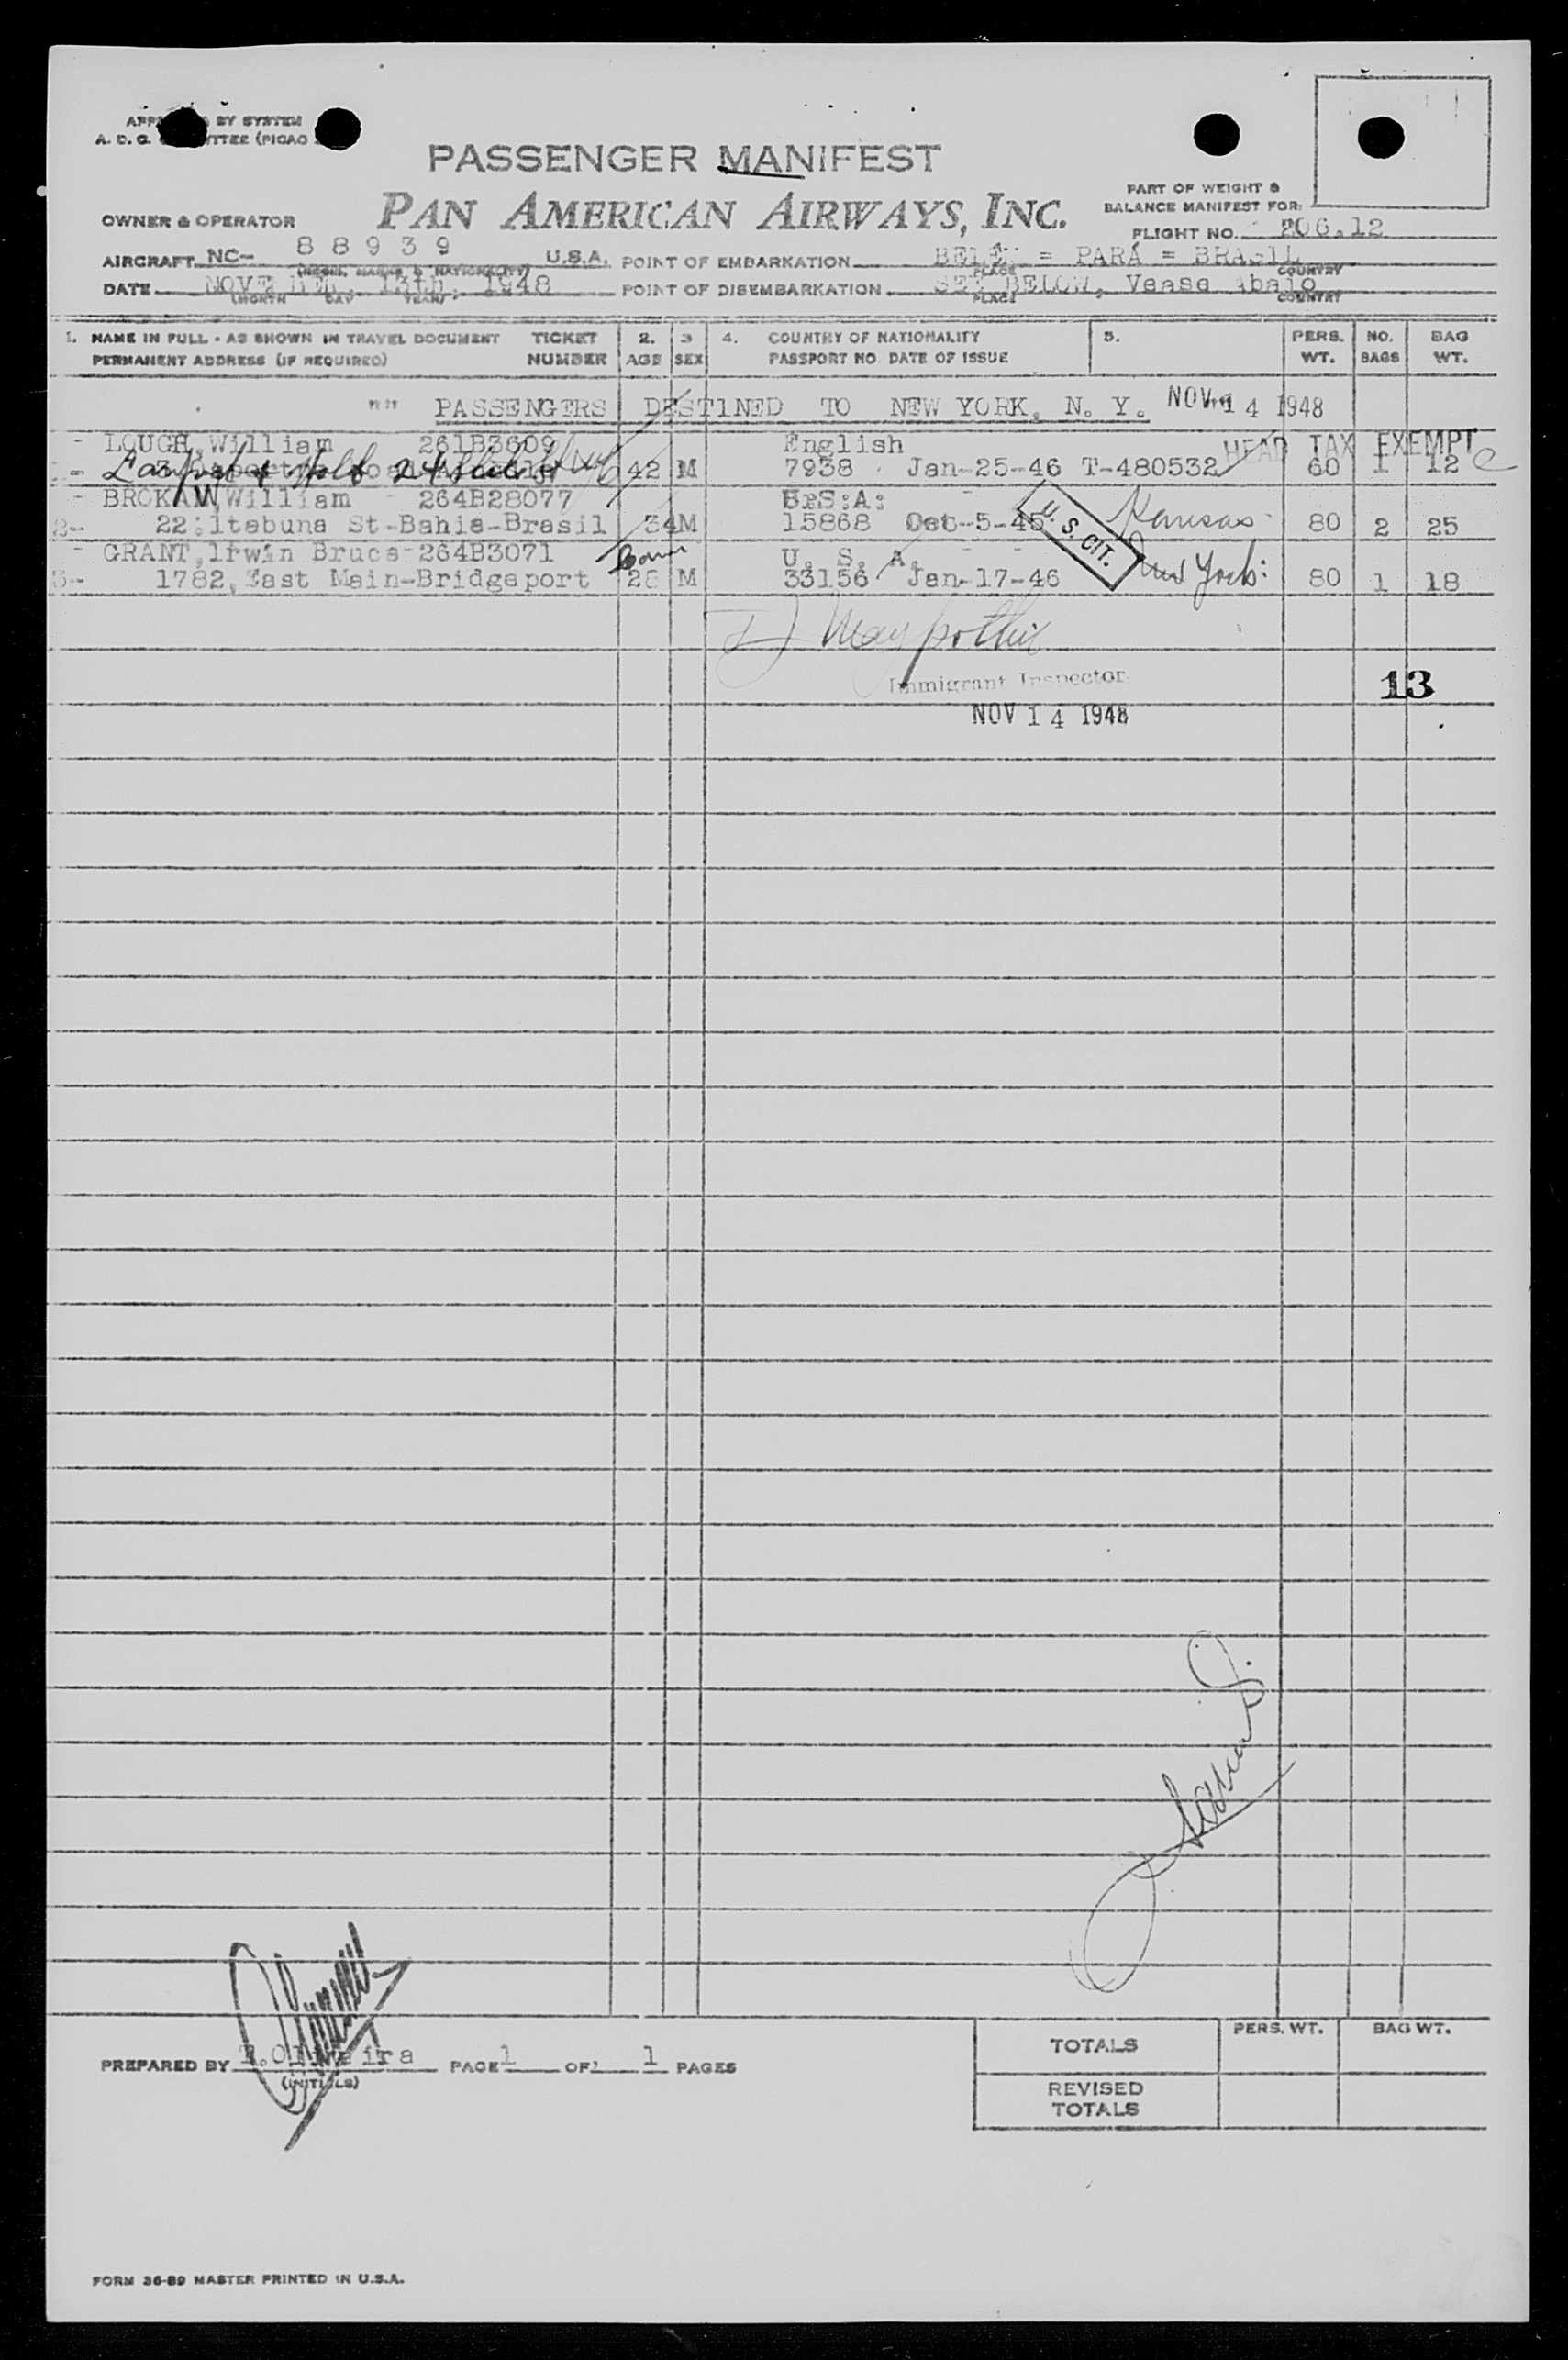 BY SYSTEM
A. D. C. (PICAO
PASSENGER MANIFEST
PAN AMERICAN AIRWAYS, INC.
PART OF WEIGHT &
BALANCE MANIFEST FOR:
OWNER & OPERATOR
FLIGHT NO. 206.12
AIRCRAFT NC- 88939 U.S.A. POINT OF EMBARKATION BELEM = PARÁ = BRASIL
PLACE COUNTRY
DATE 13th, 1948 POINT OF DISEMBARKATION SEE BELOW, Vease Abajo
(MONTH DAY YEAR) PLACE COUNTRY
1. NAME IN FULL - AS SHOWN IN TRAVEL DOCUMENT TICKET 2. 3 4. COUNTRY OF NATIONALITY 5. PERS. NO. BAG
PERMANENT ADDRESS (IF REQUIRED) NUMBER AGE SEX PASSPORT NO. DATE OF ISSUE WT. BAGS WT.
"" PASSENGERS DESTINED TO NEW YORK, N. Y. NOV 14 1948
- LOUGH, William 261B3609 English HEAD TAX EXEMPT
42 M 7938 Jan-25-46 T-480532 60 1 12
- BROKAW, William 264B28077 U.S.A:
2-- 22:Itabuna St-Bahia-Brasil 34 M 15868 Oct-5-45 U. S. CIT. Kansas 80 2 25
- GRANT, Irwin Bruce-264B3071 U. S. A.
3-- 1782, East Main-Bridgeport 28 M 33156 Jan-17-46 New York: 80 1 18
Immigrant Inspector
13
NOV 14 1948
PREPARED BY PAGE 1 OF 1 PAGES
(INITIALS)
TOTALS PERS. WT. BAG WT.
REVISED
TOTALS
FORM 36-89 MASTER PRINTED IN U.S.A.